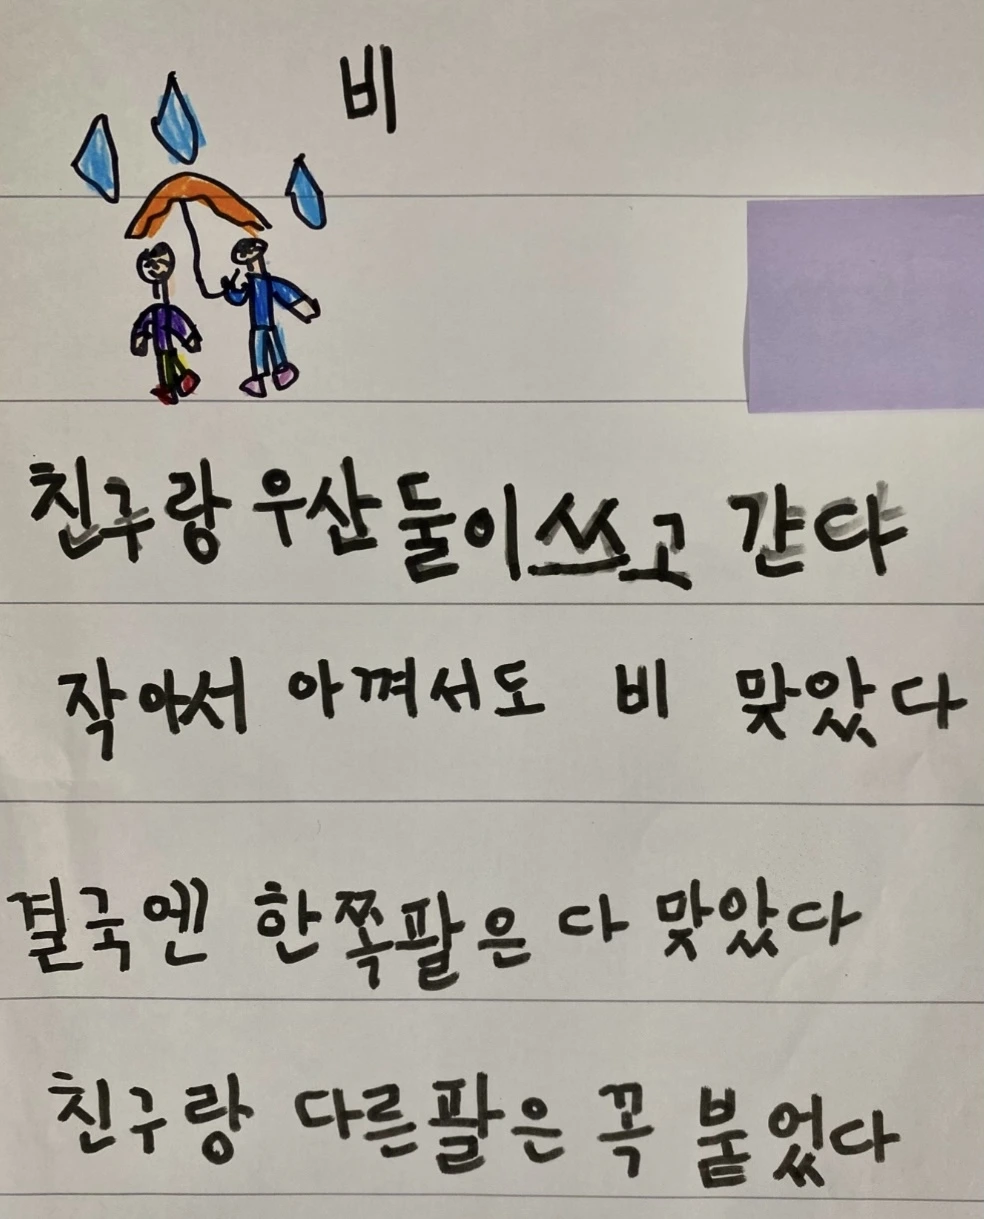 비
친구랑 우산 둘이 쓰고 간다
작아서 아껴서도 비 맞았다
결국엔 한쪽팔은 다 맞았다
친구랑 다른팔은 꼭 붙었다